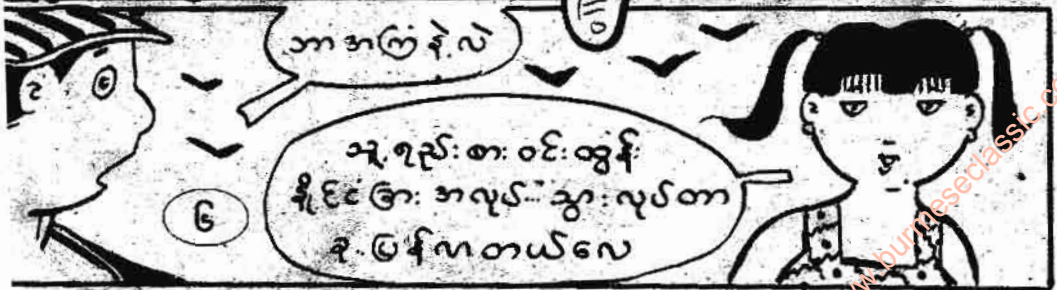 ဘာအကြံနဲ့လဲ
သူ့ရည်းစား ဝင်းထွန်း
နိုင်ငံခြား အလုပ် သွားလုပ်တာ
ခု ပြန်လာတယ်လေ
၆
www.burmeseclassic.co